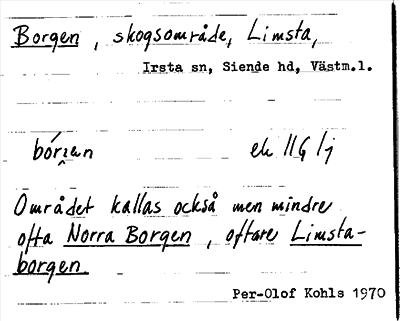 Borgen, skogsområde, Limsta,
Irsta sn, Siende hd, Västm.l.
ek 11G 1j
Området kallas också men mindre
ofta Norra Borgen, oftare Limsta-
borgen
Per-Olof Kohls 1970